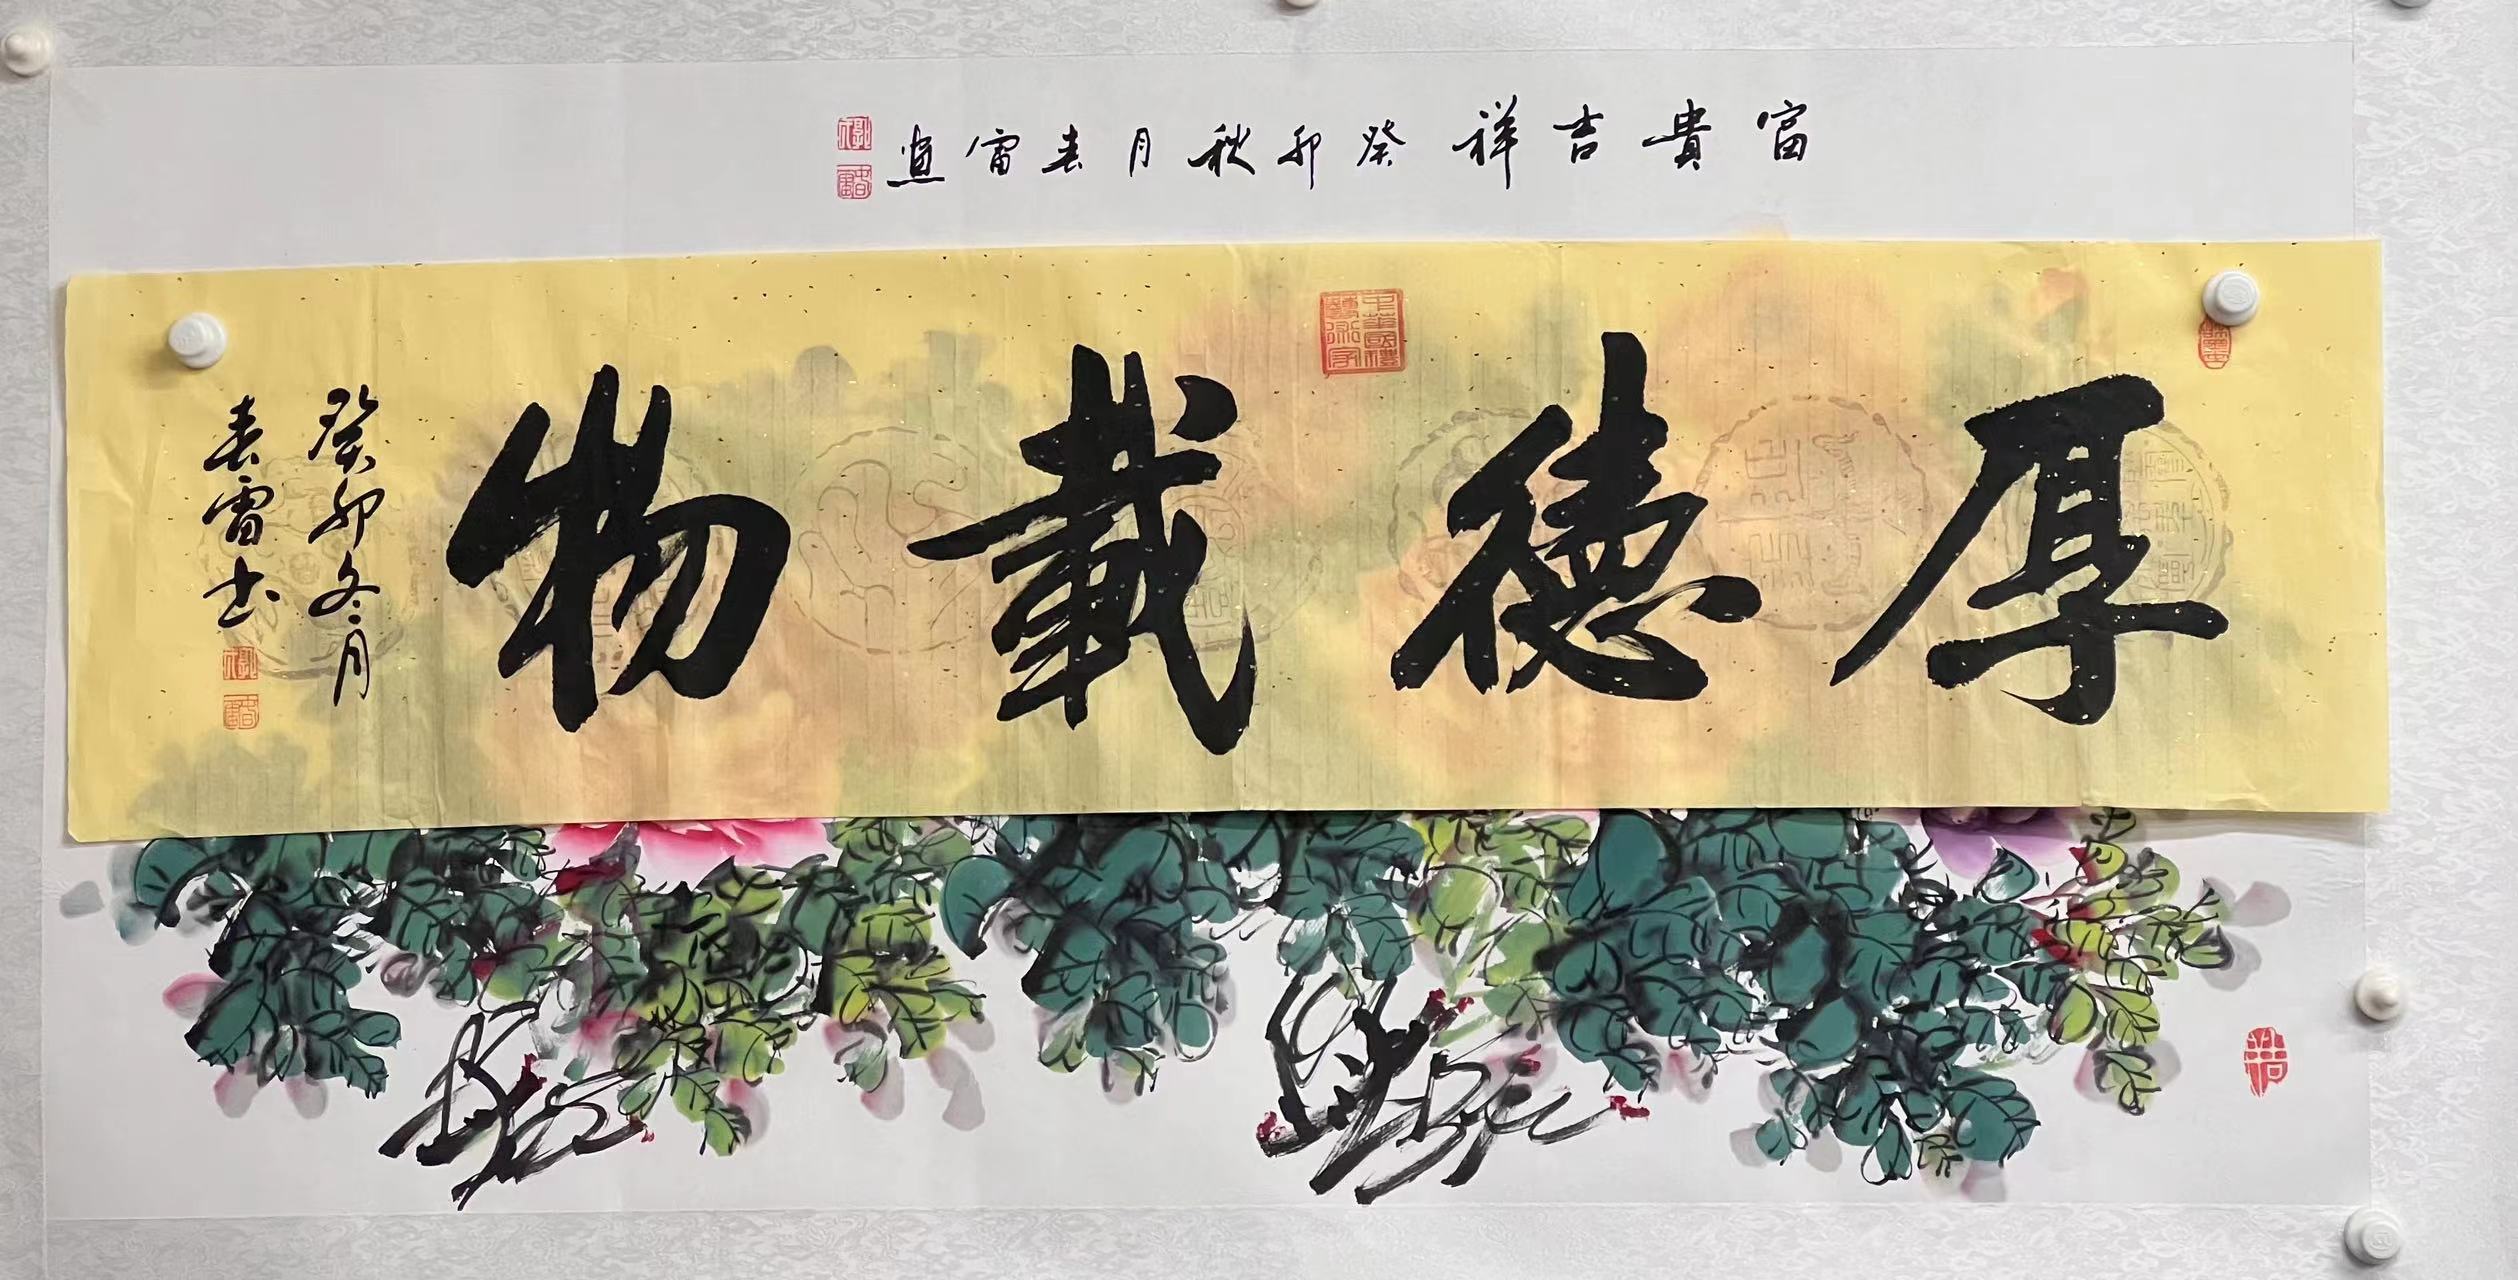 富貴吉祥 癸卯秋月春雷画
厚德載物
癸卯冬月
春雷书